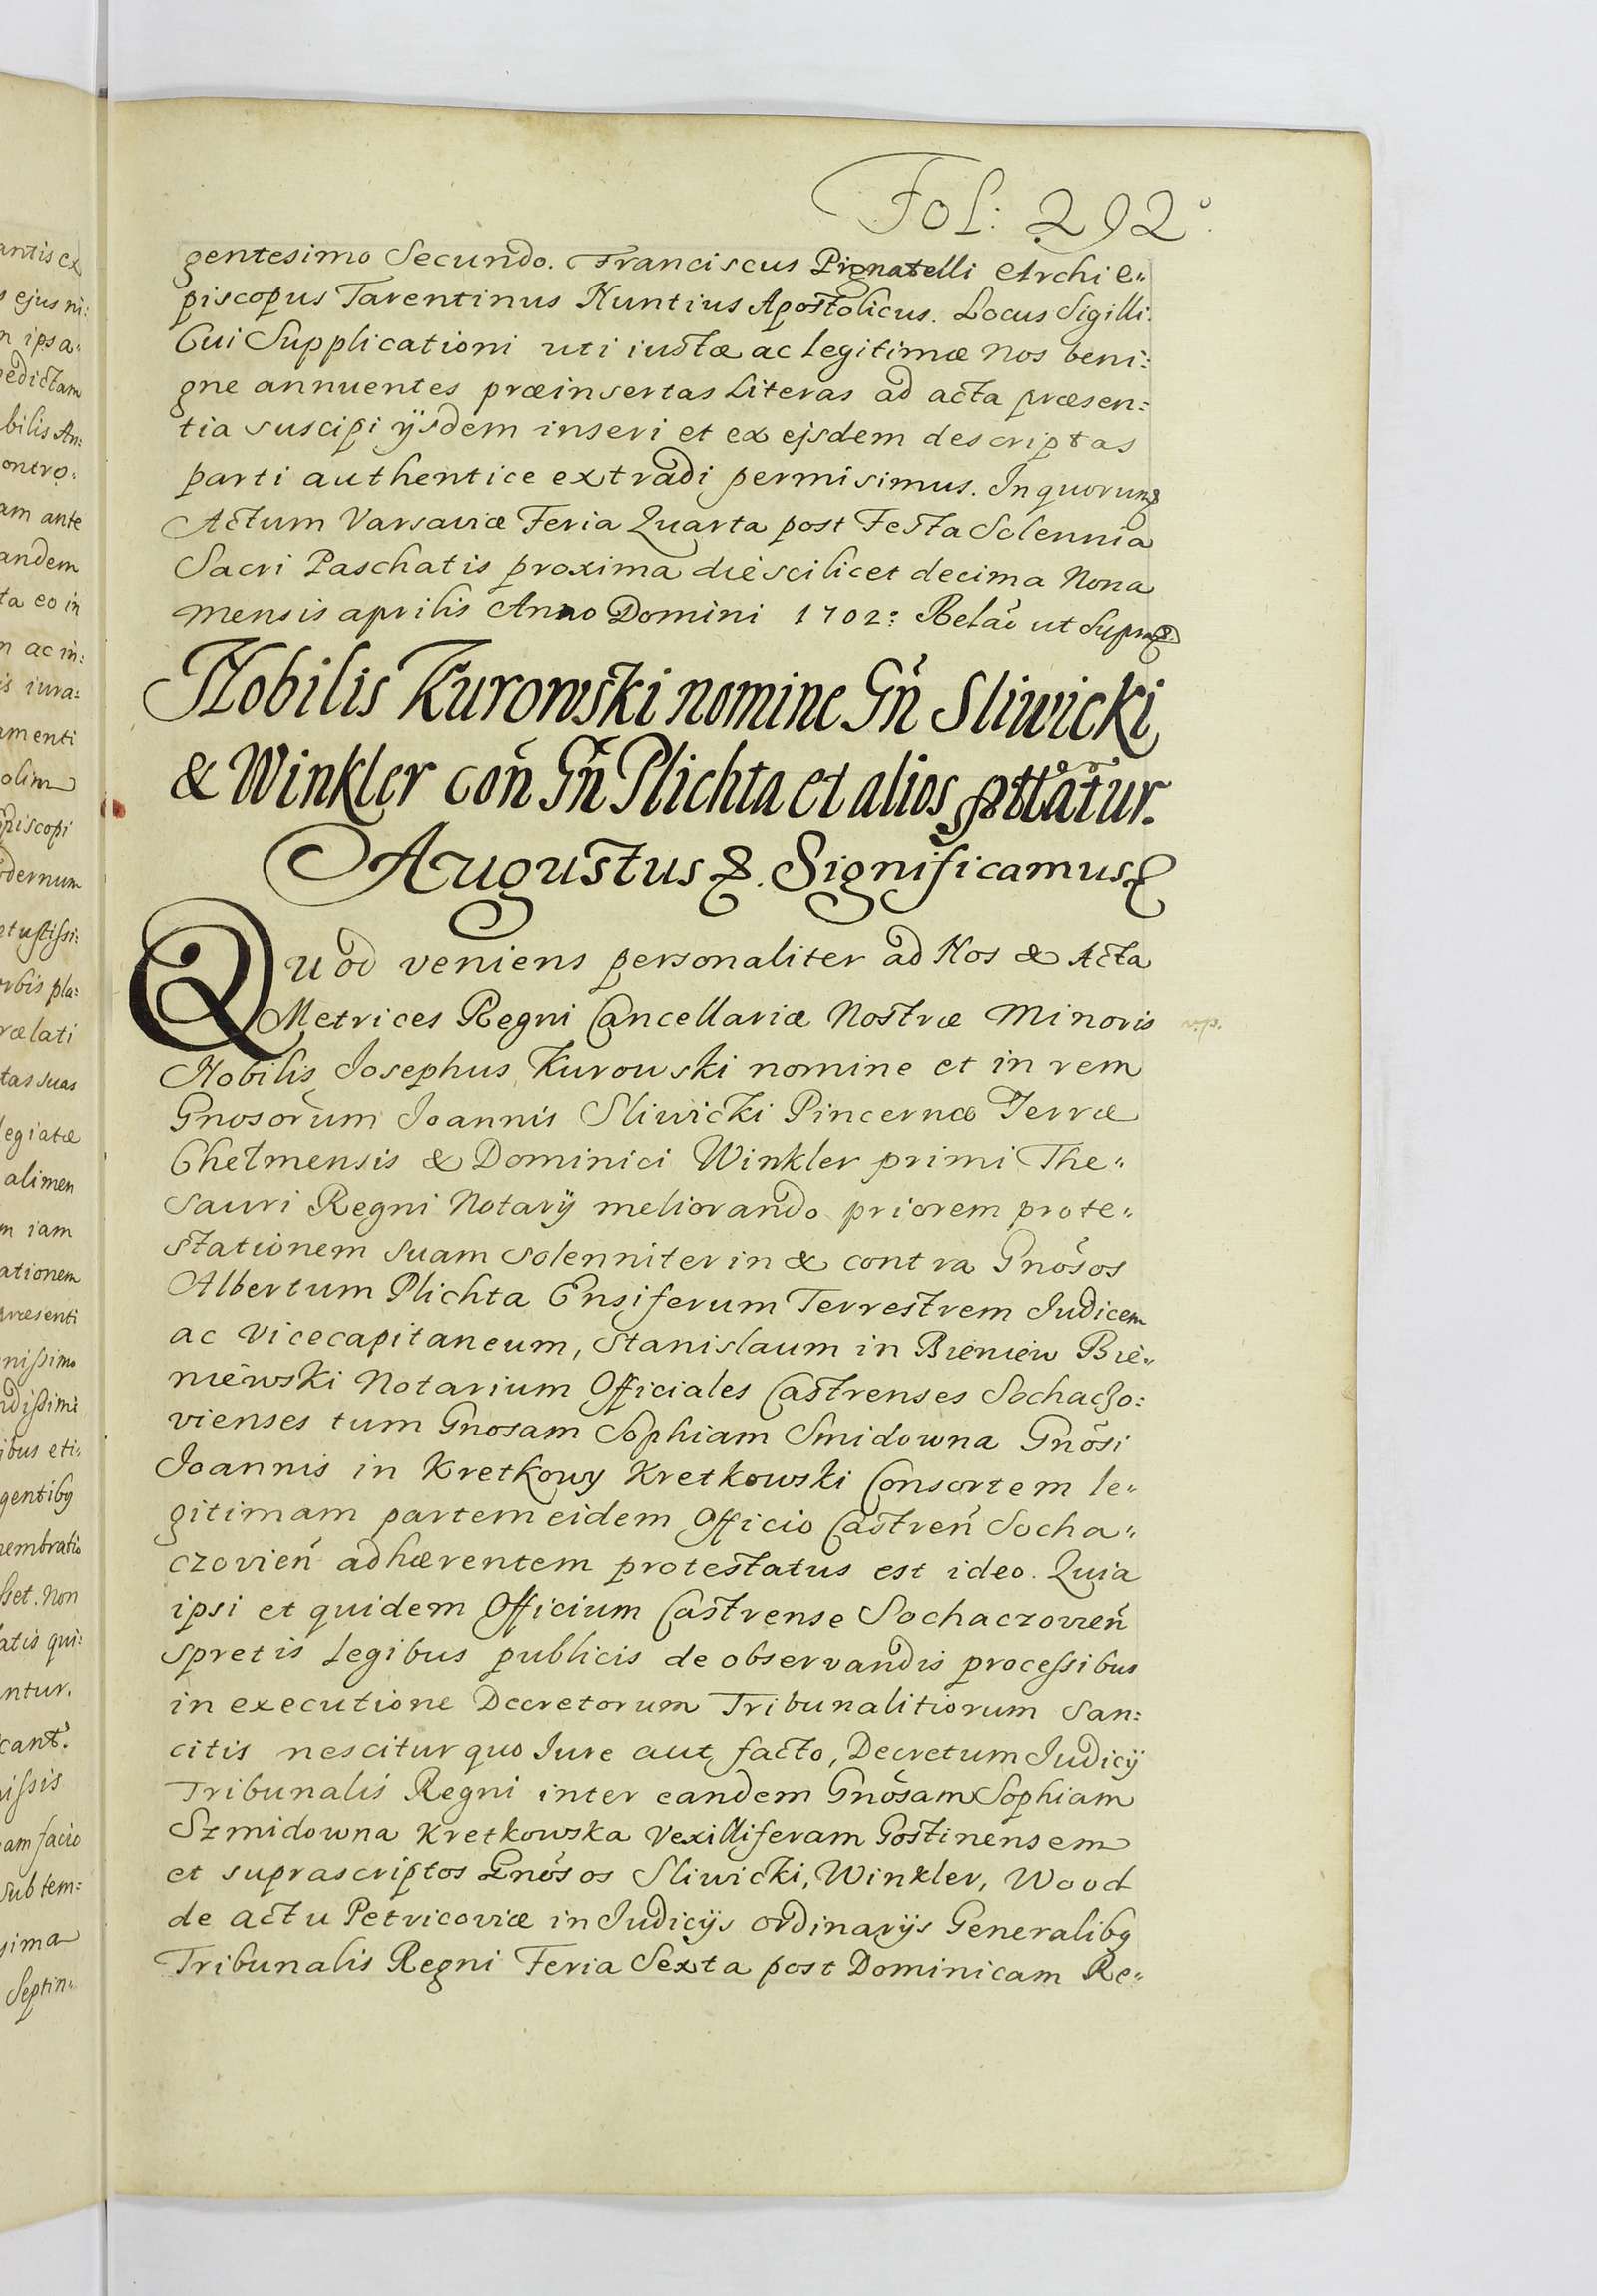 Fol: 292
gentesimo Secundo. Franciscus Pignatelli Archie„
piscopus Tarentinus Nuntius Apostolicus. Locus Sigilli.
Cui Supplicationi uti iustæ ac legitimæ nos beni:
gne annuentes præinsertas Literas ad acta præsen:
tia suscipi ijsdem inseri et ex ejsdem descriptas
parti authentice extradi permisimus. In quorum &
Actum Varsaviæ Feria Quarta post Festa Solennia
Sacri Paschatis proxima die scilicet decima Nona
mensis aprilis Anno Domini 1702: Relaõ ut Supra &.
Nobilis Kurowski nomine Gñ Sliwicki
& Winkler coñ Gñ Plichta et alios prttatur.
Augustus &. Significamus &
Quod veniens personaliter ad Nos & Acta
Metrices Regni Cancellariæ Nostræ Minoris
Nobilis Josephus Kurowski nomine et in rem
Gnosorum Joannis Sliwicki Pincernæ Terræ
Chelmensis & Dominici Winkler primi The„
sauri Regni Notarij meliorando priorem prote„
stationem suam solenniter in & contra Gnõsos
Albertum Plichta Ensiferum Terrestrem Judicem
ac Vicecapitaneum, Stanislaum in Bieniew Bie„
niewski Notarium Officiales Castrenses Sochaczo:
vienses tum Gnosam Sophiam Smidowna Gnõsi
Joannis in Kretkowy Kretkowski Consortem le„
gitimam partem eidem Officio Castreñ Socha„
czovieñ adhærentem protestatus est ideo. Quia
ipsi et quidem Officium Castrense Sochaczovieñ
spretis Legibus publicis de observandis processibus
in executione Decretorum Tribunalitiorum San:
citis nescitur quo Jure aut facto, Decretum Judicij
Tribunalis Regni inter eandem Gnõsam Sophiam
Szmidowna Kretkowska Vexilliferam Gostinensem
et suprascriptos Gnõsos Sliwicki, Winkler, Wood
de actu Petricoviæ in Judicijs ordinarijs Generalibq
Tribunalis Regni Feria Sexta post Dominicam Re„